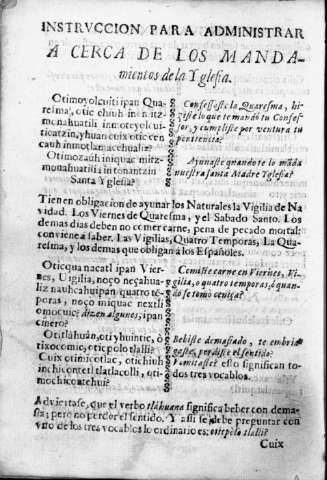 INSTRVCCION PARA ADMINISTRAR
A CERCA DE LOS MANDA-
mientos de la Yglesia.
Otimoyolcuiti ipan Qua-
resma, otic chiuh in
monahuatili inmoteyolcui-
ticatzin, yhuan cuix oticcen-
cauh inmotlamacehualiz?
Confessaste la Quaresma, hi-
ziste lo que te mandó tu Confes-
sor, y cumpliste por ventura tu
penitencia?
Otimozauh iniquac mitz-
monahuatilia intonantzin
Santa Yglesia?
Ayunaste quando te lo mãda
nuestra santa Madre Yglesia?
Tienen obligacion de ayunar los Naturales la Vigilia de Na-
vidad. Los Viernes de Quaresma, y el Sabado Santo. Los
demas dias deben no comer carne, pena de pecado mortal;
conviene a saber. Las Vigilias, Quatro Temporas, La Qua-
resma, y los demas que obligan a los Españoles.
Oticqua nacatl ipan Vier-
nes, Uigilia, noço neçahua-
liz nauhcahuipan quatro té-
poras, noço iniquac nextli
omocuic; dizen algunos, ipan
cinero?
Comiste carne en Viernes, Vi-
gilia, o quatro temporas, ó quan-
do se tomò ceniça?
Otitlàhuan, oti yhuintic, o-
tixocomic, oticpolo tlalli?
Cuix otimicetlac, otichiuh
inchicontetl tlatlacolli, oti-
mochicotehui?
Bebiste demasiado, te embria-
gaste, perdiste el sentido?
Vomitaste? esto significan to-
dos tres vocablos.
Adviertase, que el verbo tlàhuana significa beber con dema-
sia; pero no perder el sentido. Y assi se debe preguntar con
vno de los tres vocablos lo ordinario es: oticpolo tlalli?
Cuix